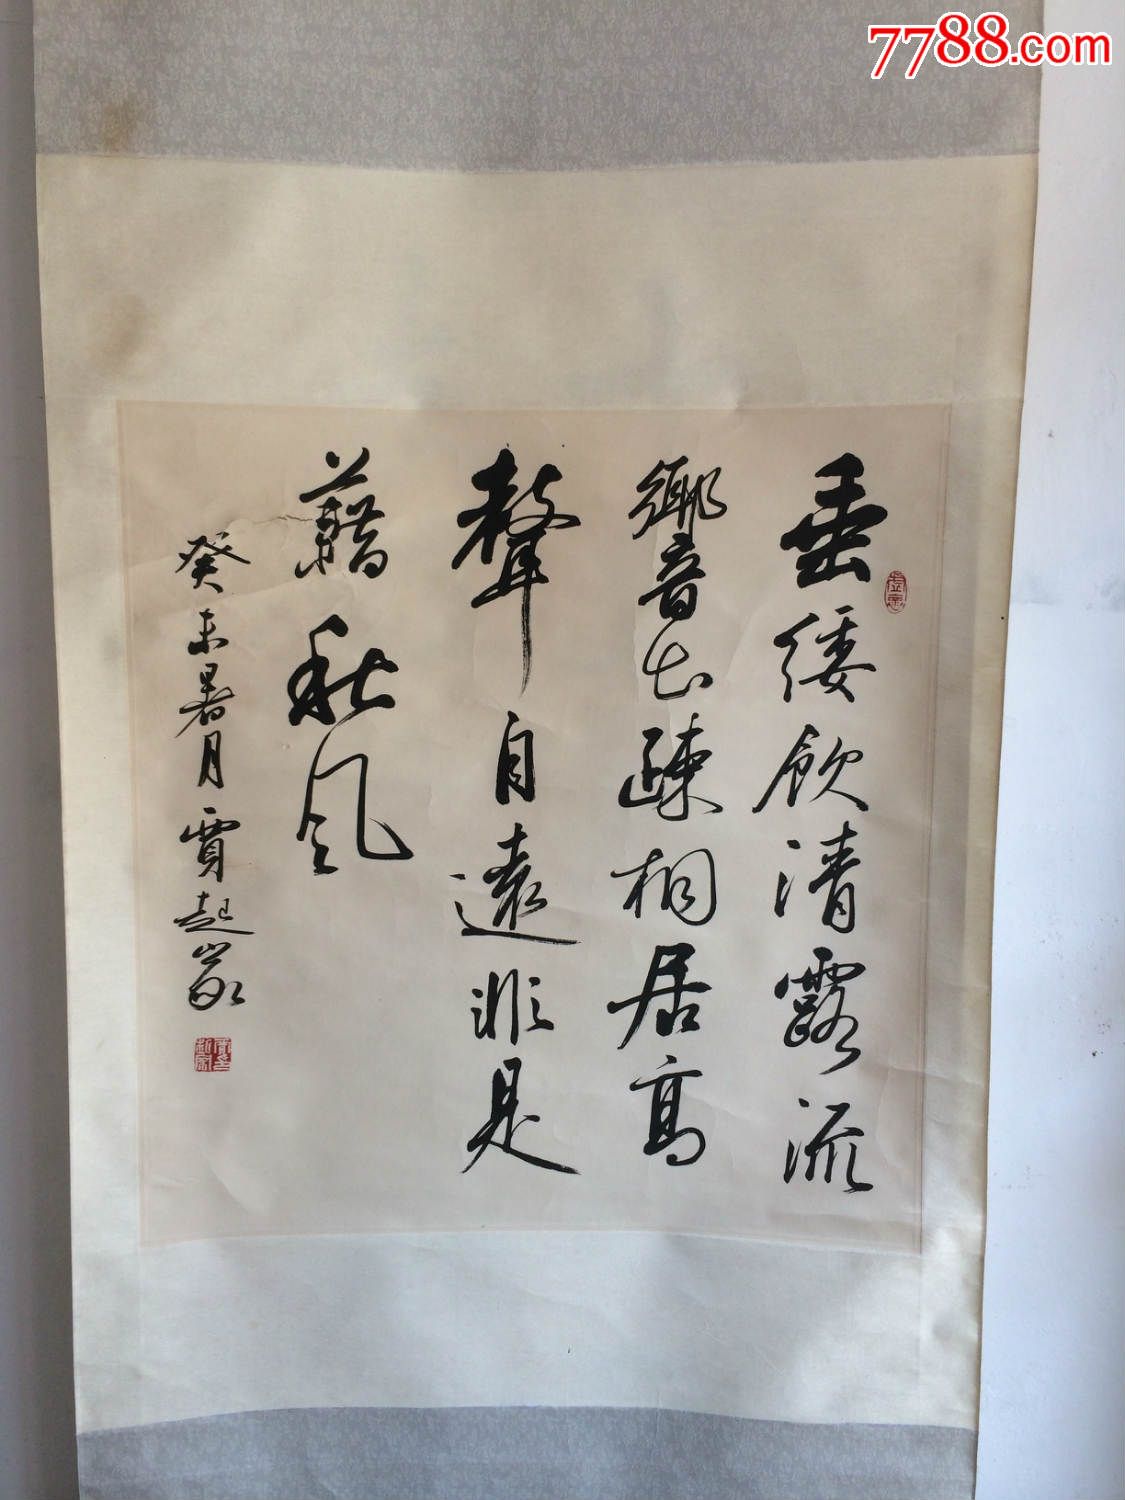 7788.com
垂緌飲清露流
響出疎桐居高
聲自遠非是
藉秋風
癸未暑月賈起家